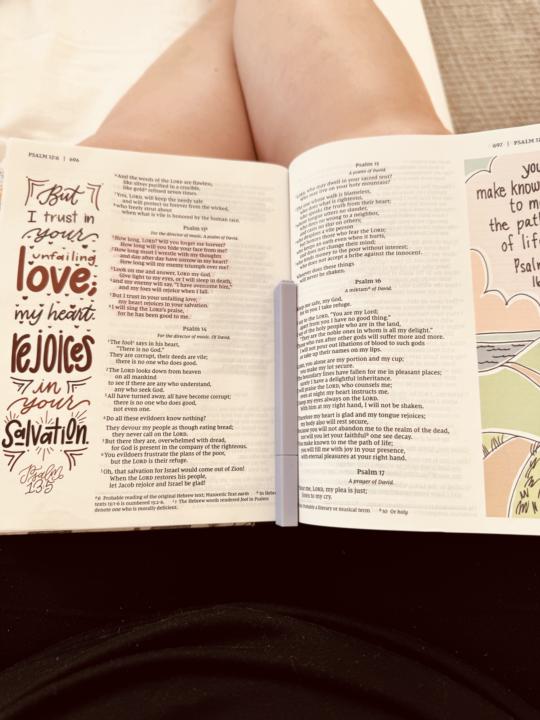 PSALM 12:6 | 696
But
I trust in
your
unfailing
love;
my heart
rejoices
in
your
salvation.
Psalm
13:5
⁶And the words of the LORD are flawless,
like silver purified in a crucible,
like gold refined seven times.
⁷You, LORD, will keep the needy safe
and will protect us forever from the wicked,
⁸who freely strut about
when what is vile is honored by the human race.
Psalm 13
For the director of music. A psalm of David.
¹How long, LORD? Will you forget me forever?
How long will you hide your face from me?
²How long must I wrestle with my thoughts
and day after day have sorrow in my heart?
How long will my enemy triumph over me?
³Look on me and answer, LORD my God.
Give light to my eyes, or I will sleep in death,
⁴and my enemy will say, "I have overcome him,"
and my foes will rejoice when I fall.
⁵But I trust in your unfailing love;
my heart rejoices in your salvation.
⁶I will sing the LORD's praise,
for he has been good to me.
Psalm 14
For the director of music. Of David.
¹The fool says in his heart,
"There is no God."
They are corrupt, their deeds are vile;
there is no one who does good.
²The LORD looks down from heaven
on all mankind
to see if there are any who understand,
any who seek God.
³All have turned away, all have become corrupt;
there is no one who does good,
not even one.
⁴Do all these evildoers know nothing?
They devour my people as though eating bread;
they never call on the LORD.
⁵But there they are, overwhelmed with dread,
for God is present in the company of the righteous.
⁶You evildoers frustrate the plans of the poor,
but the LORD is their refuge.
⁷Oh, that salvation for Israel would come out of Zion!
When the LORD restores his people,
let Jacob rejoice and Israel be glad!
6 Probable reading of the original Hebrew text; Masoretic Text earth In Hebrew
texts 13:1-6 is numbered 13:2-6. The Hebrew words rendered fool in Psalms
denote one who is morally deficient.
697 | PSALM
Psalm 15
A psalm of David.
LORD, who may dwell in your sacred tent?
who may live on your holy mountain?
whose walk is blameless,
who does what is righteous,
who speaks the truth from their heart;
tongue utters no slander,
who does no wrong to a neighbor,
and casts no slur on others;
despises a vile person
but honors those who fear the LORD;
keeps an oath even when it hurts,
and does not change their mind;
lends money to the poor without interest;
who does not accept a bribe against the innocent.
does these things
will never be shaken.
Psalm 16
A miktam of David.
me safe, my God,
in you I take refuge.
to the LORD, "You are my Lord;
apart from you I have no good thing."
of the holy people who are in the land,
"They are the noble ones in whom is all my delight."
who run after other gods will suffer more and more.
I will not pour out libations of blood to such gods
or take up their names on my lips.
you alone are my portion and my cup;
you make my lot secure.
boundary lines have fallen for me in pleasant places;
surely I have a delightful inheritance.
praise the LORD, who counsels me;
even at night my heart instructs me.
keep my eyes always on the LORD.
With him at my right hand, I will not be shaken.
Therefore my heart is glad and my tongue rejoices;
my body also will rest secure,
because you will not abandon me to the realm of the dead,
nor will you let your faithful one see decay.
make known to me the path of life;
you will fill me with joy in your presence,
with eternal pleasures at your right hand.
Psalm 17
A prayer of David.
me, LORD, my plea is just;
listen to my cry.
a literary or musical term 10 Or holy
you
make know
to m
the pat
of life
Psalm
16